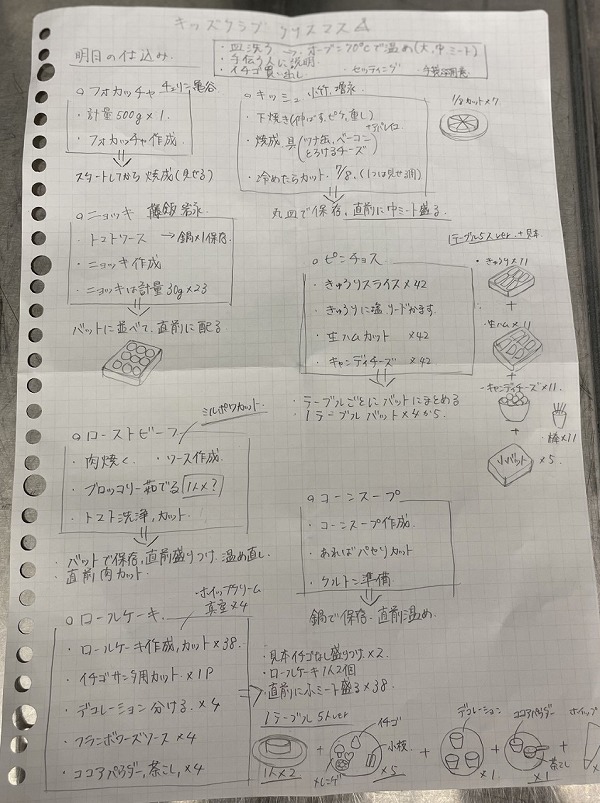 キッズクラブ クリスマス
明日の仕込み
・皿洗う → オーブン70℃で温め(大,中ミート)
・手伝う人に説明
・イチゴ買い出し ・セッティング
○フォカッチャ
・計量500g×1.
・フォカッチャ作成
スタートしてから焼成(見せる)
○キッシュ
・下焼き(伸ばす,ピケ,重し)
・焼成 具(ツナ缶,ベーコン
とろけるチーズ
・冷めたらカット 7/8.
丸皿で保存,直前に中ミート盛る.
1/8カット×7
○ニョッキ
・トマトソース → 鍋×1保存.
・ニョッキ作成
・ニョッキは計量30g×23
バットに並べて,直前に配る
○ピンチョス
・きゅうりスライス×42
・きゅうりに塩
・生ハムカット ×42
・キャンディチーズ ×42
・テーブルごとにバットにまとめる
・1テーブル バット×4から.
1テーブル5人ver.+見本
・きゅうり×11
+
・生ハム×11
+
・キャンディチーズ×11.
・棒×11
+
小バット ×5
○ローストビーフ
ミルポワカット.
・肉焼く. ・ソース作成.
・ブロッコリー茹でる 1人×?
・トマト洗浄,カット.
・バットで保存,直前盛りつけ.温め直し.
・直前肉カット.
○コーンスープ
・コーンスープ作成.
・あればパセリカット
・クルトン準備
鍋で保存-直前温め.
○ロールケーキ.
・ホイップクリーム
真空×4
・ロールケーキ作成,カット×38.
・イチゴサンタ用カット×1P
・デコレーション分ける.×4
・フランボワーズソース×4
・ココアパウダー,茶こし,×4
・見本イチゴなし盛りつけ×2.
・ロールケーキ1人2個
・直前に小ミート盛る×38.
1テーブル5人ver
1人×2
+
イチゴ
小枝
メレンゲ
×5
+
デコレーション
×1
+
ココアパウダー
茶こし
×1
+
ホイップ